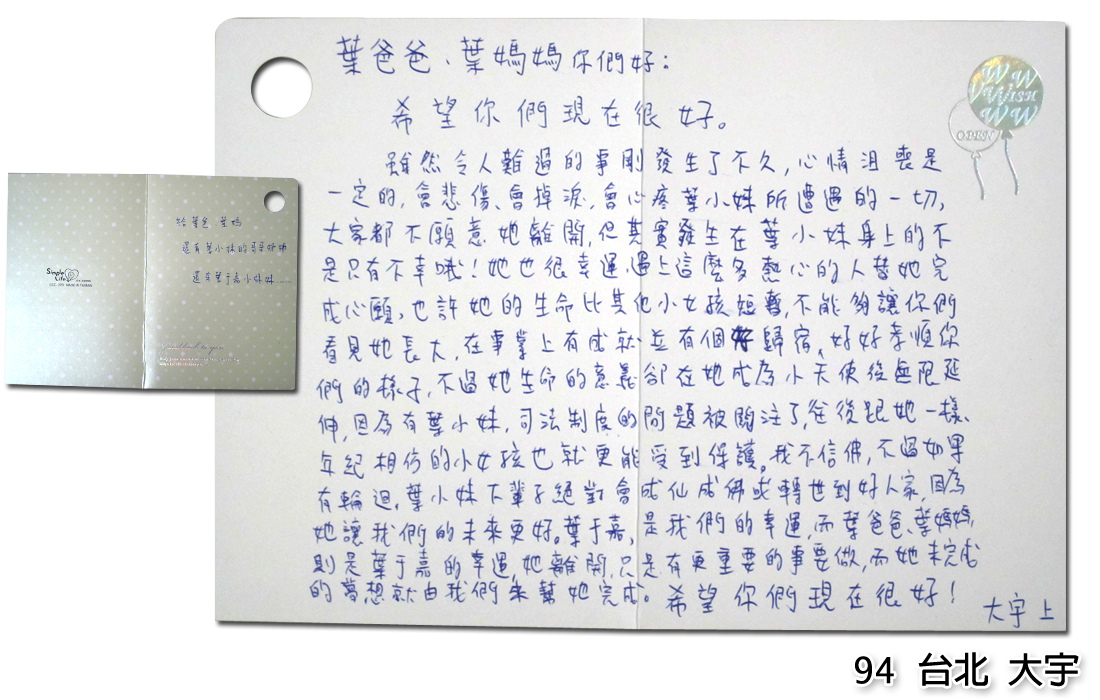 葉爸爸、葉媽媽你們好：
希望你們現在很好。
雖然令人難過的事剛發生了不久，心情沮喪是
一定的，會悲傷、會掉淚，會心疼葉小妹所遭遇的一切，
大家都不願意她離開，但其實發生在葉小妹身上的不
是只有不幸哦！她也很幸運，遇上這麼多熱心的人替她完
成心願，也許她的生命比其他小女孩短暫，不能夠讓你們
看見她長大，在事業上有成就並有個好歸宿、好好孝順你
們的樣子，不過她生命的意義卻在她成為小天使後無限延
伸，因為有葉小妹，司法制度的問題被關注了，從後跟她一樣、
年紀相仿的小女孩也就更能受到保護。我不信佛，不過如果
有輪迴，葉小妹下輩子絕對會成仙成佛或轉世到好人家，因為
她讓我們的未來更好。葉于嘉，是我們的幸運，而葉爸爸、葉媽媽，
則是葉于嘉的幸運，她離開，只是有更重要的事要做，而她未完成
的夢想就由我們來幫她完成。希望你們現在很好！
大宇上
W W
WISH
W W
OPEN
給葉爸 葉媽
還有葉小妹的
還有葉于嘉小妹妹......
Simple
Life
MADE IN TAIWAN
94 台北 大宇